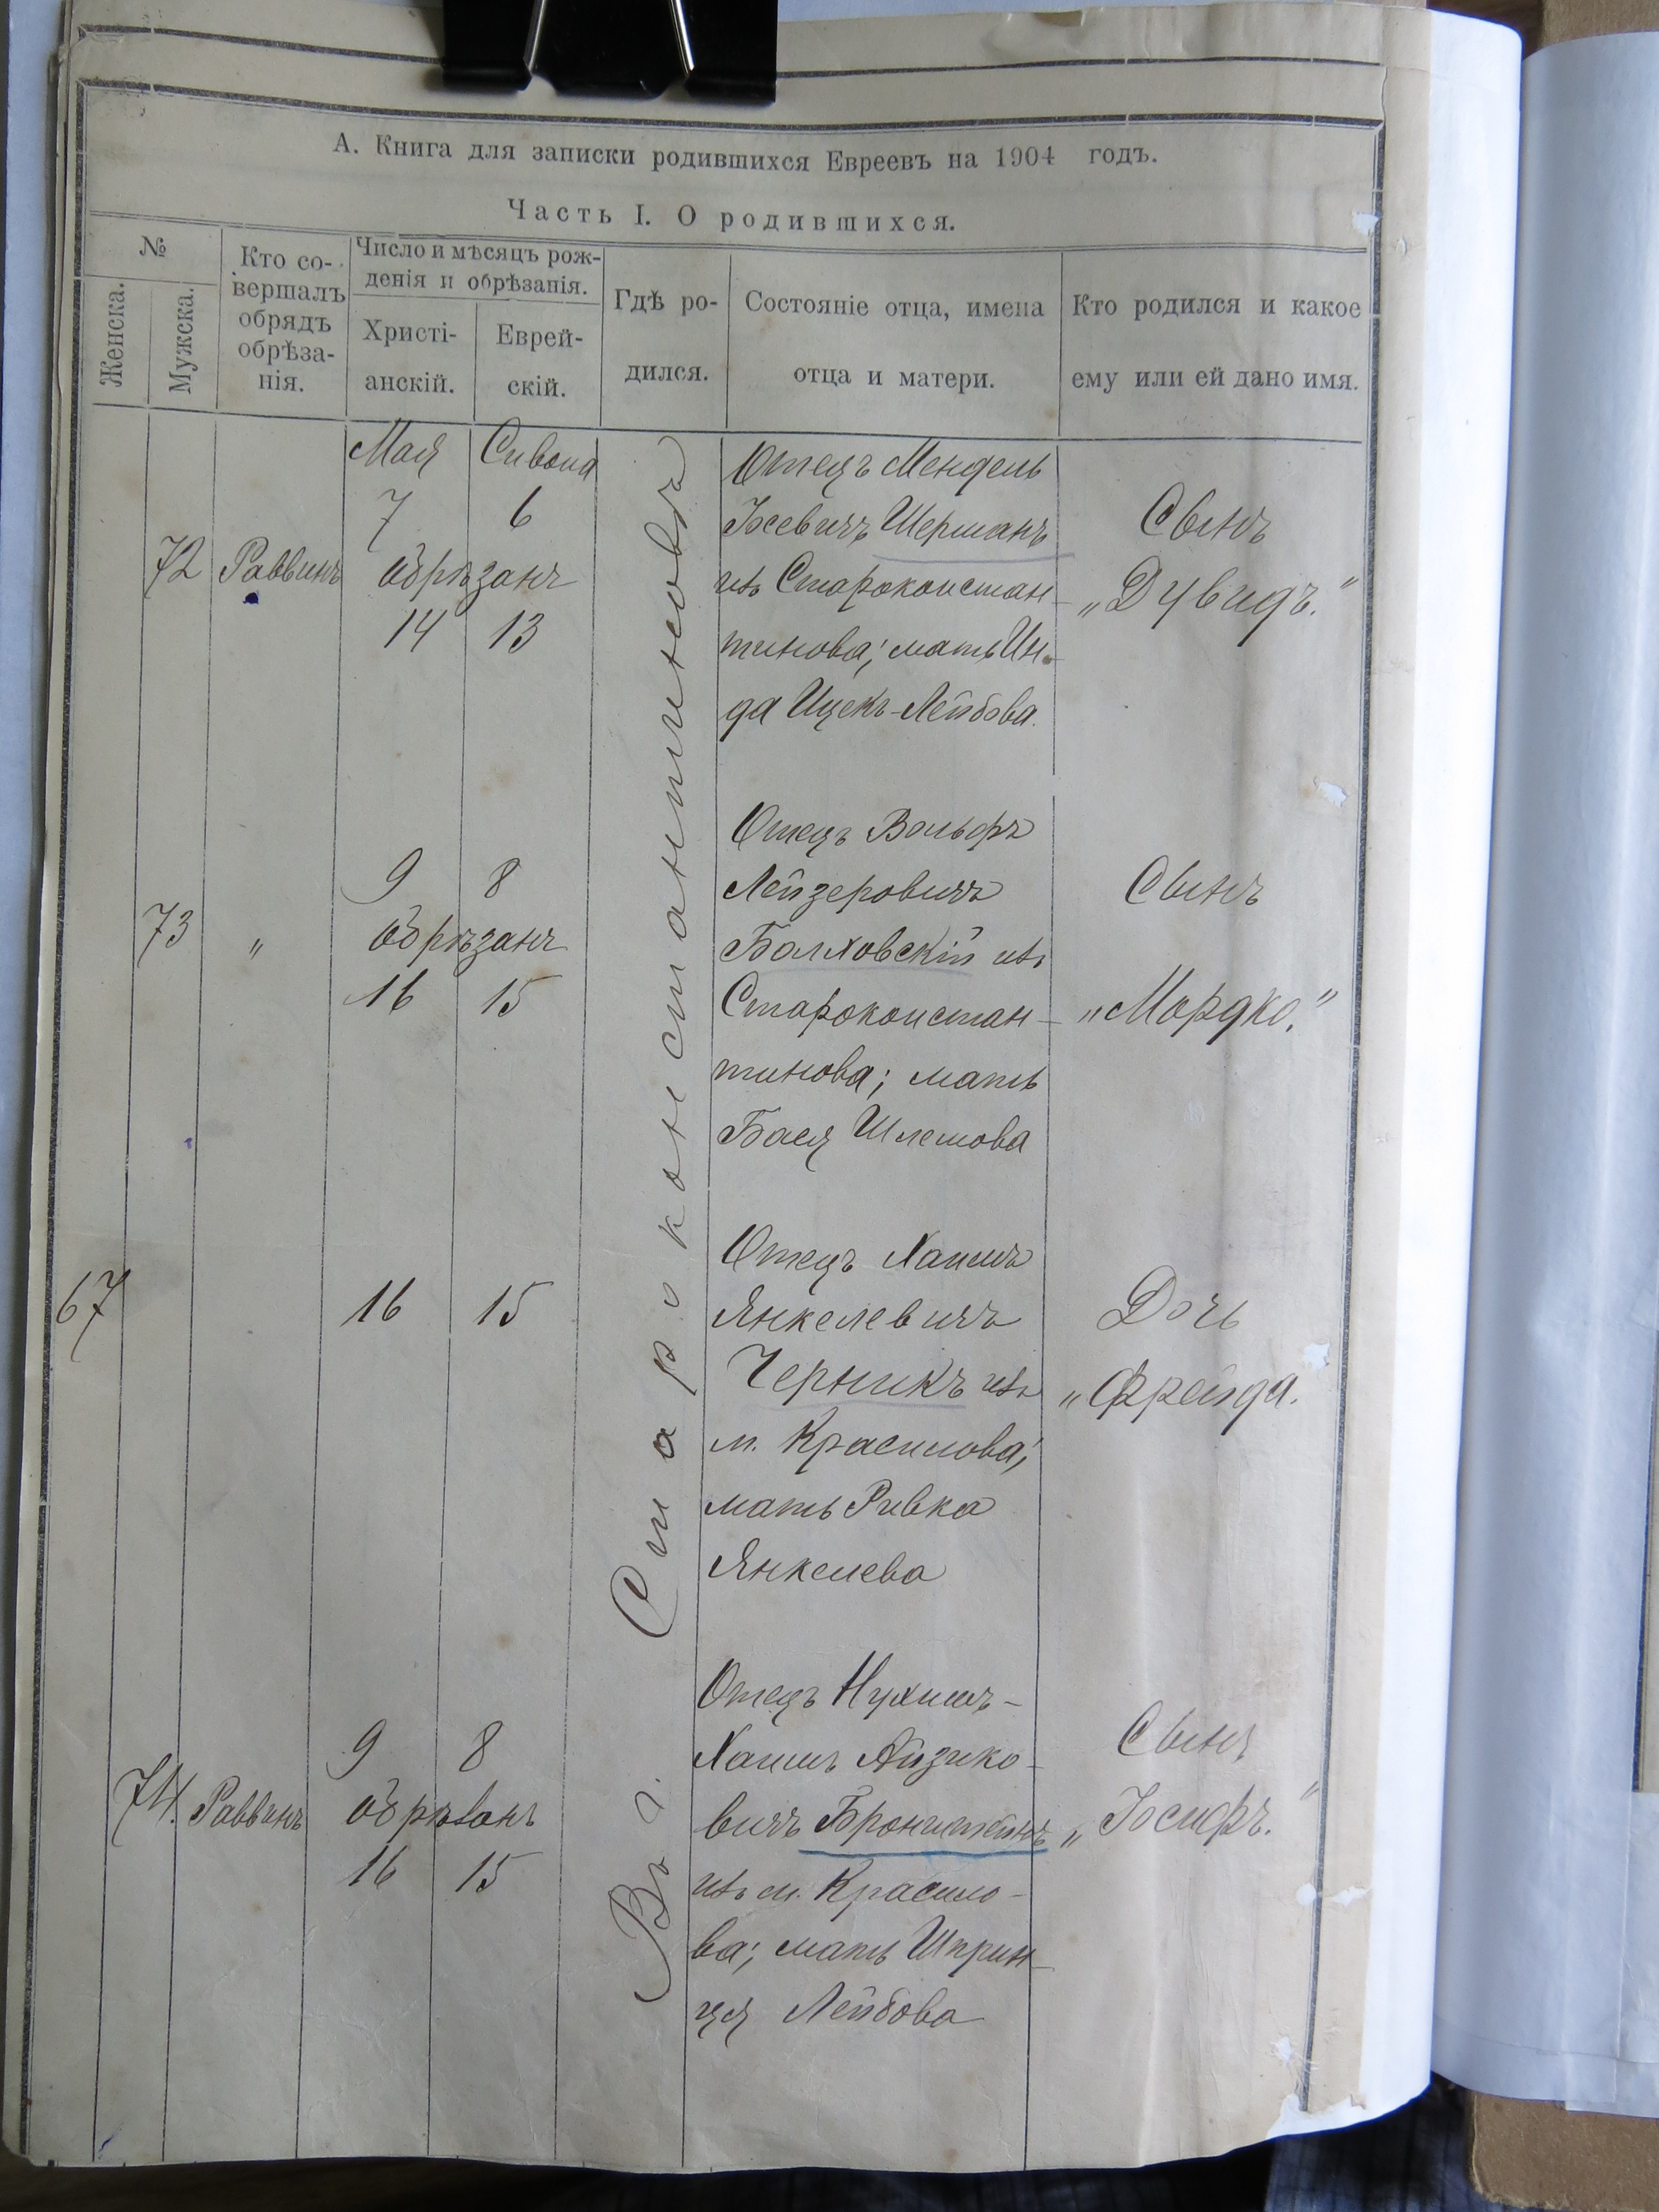 А. Книга для записки родившихся Евреевъ на 1904 годъ.
Часть I. О родившихся.
№
Женска.
Мужска.
Кто со-
вершалъ
обрядъ
обрѣза-
нія.
Число и мѣсяцъ рож-
денія и обрѣзанія.
Христі-
анскій.
Еврей-
скій.
Гдѣ ро-
дился.
Состояніе отца, имена
отца и матери.
Кто родился и какое
ему или ей дано имя.
Въ г. Староконстантиновѣ
Мая Сивона
7 6
72 Раввинъ обрѣзанъ
14 13
Отецъ Мендель
Іосевичъ Шерманъ
изъ Староконстан-
тинова; мать Ин-
да Ицекъ-Лейбова.
Сынъ
„Дувидъ."
9 8
73 „ обрѣзанъ
16 15
Отецъ Вольфъ
Лейзеровичъ
Болховскій изъ
Староконстан-
тинова; мать
Бася Шлемова
Сынъ
„Мордко."
67 16 15
Отецъ Хаимъ
Янкелевичъ
Черникъ изъ
м. Красилова;
мать Ривка
Янкелева
Дочь
„Фрейда.
9 8
74. Раввинъ обрѣзанъ
16 15
Отецъ Нухимъ-
Хаимъ Айзико-
вичъ Бронштейнъ
изъ м. Красило-
ва; мать Шприн-
ця Лейбова
Сынъ
„Іосифъ."